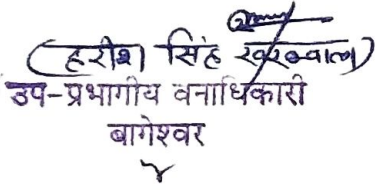 (हरीश सिंह खरकवाल)
उप-प्रभागीय वनाधिकारी
बागेश्वर